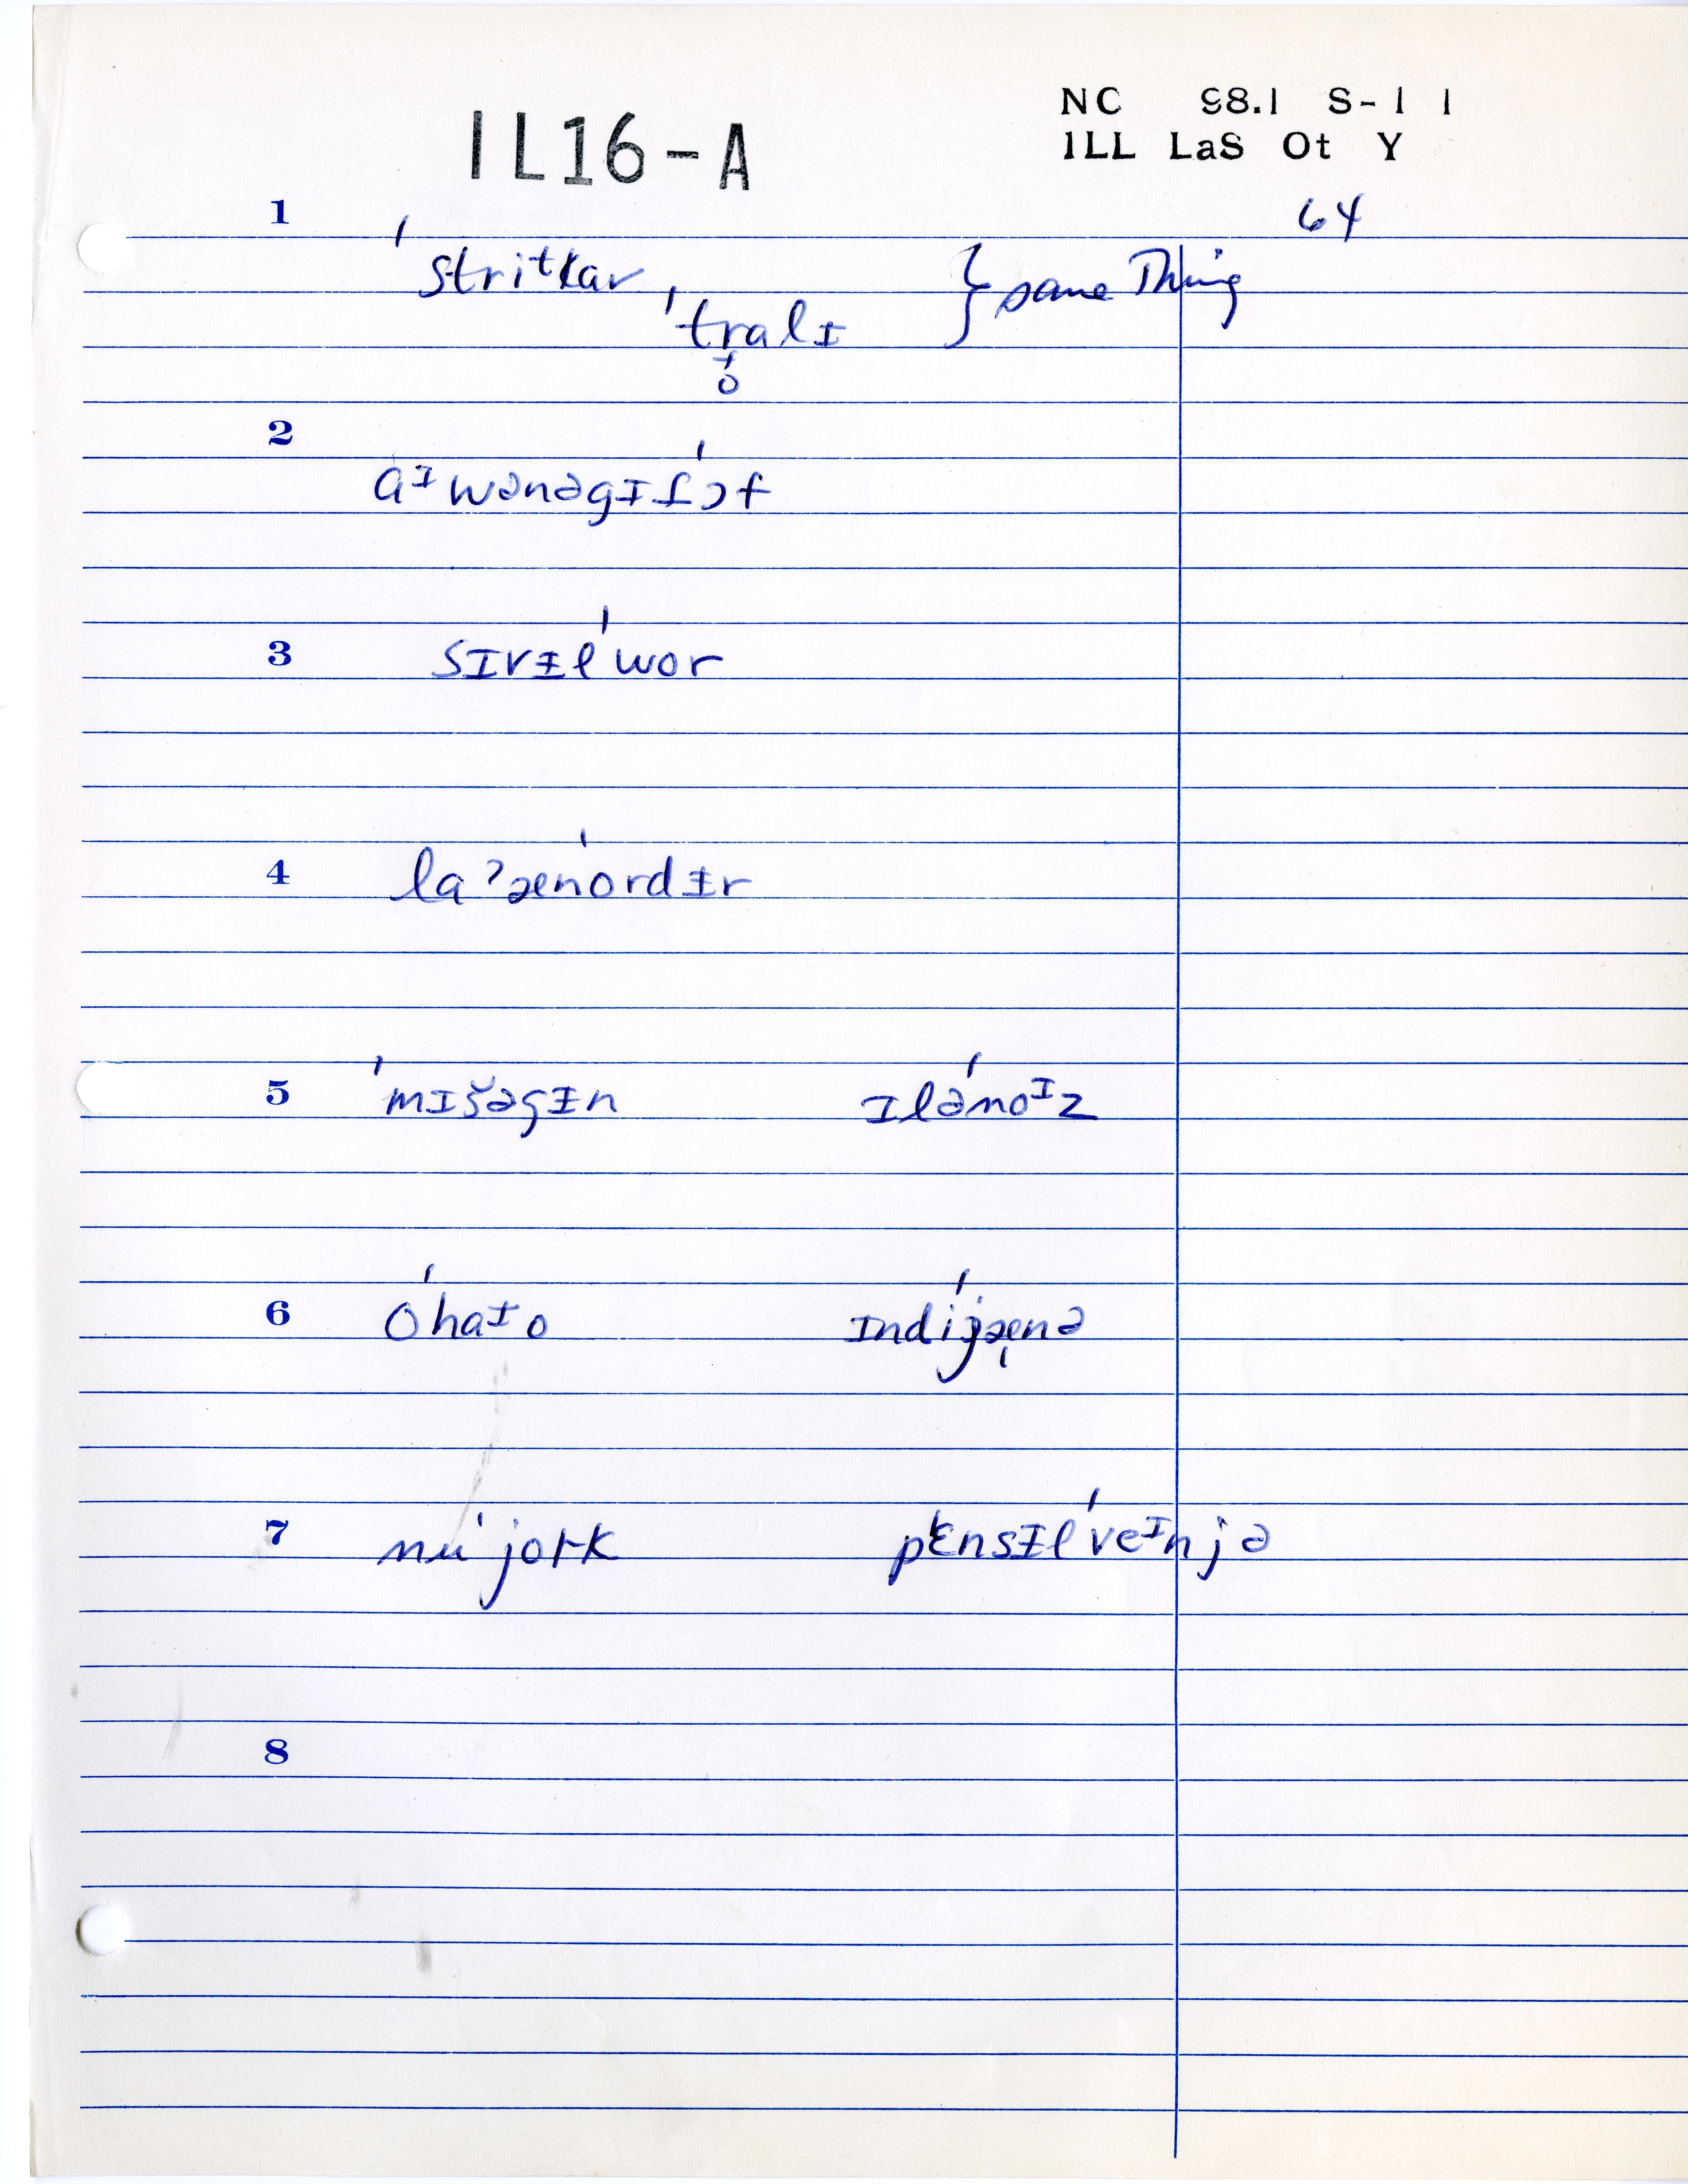 IL16-A
NC 98.1 S-11
ILL LaS Ot Y
64
1 ˈstriᵗkar } same Thing
ˈtralɨ
2 aᴵ wənəgɪt ˈɔf
3 sɪvɨl ˈwor
4 la ʔæn ˈordɨr
5 ˈmɪšəgɨn ɪləˈnoᴵz
6 oˈhaᴵo ɪndiˈjænə
7 nu ˈjork pʽɛnsɨlˈveᴵnjə
8